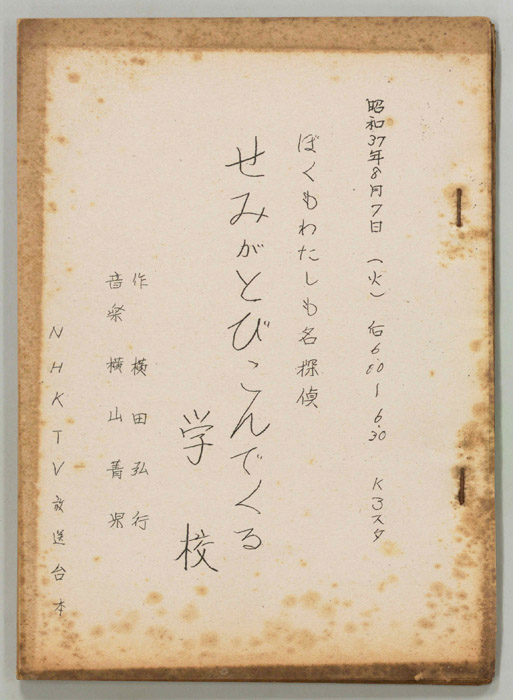 昭和37年8月7日 (火) 后6.00〜6.30 K3スタ
ぼくもわたしも名探偵
せみがとびこんでくる
学校
作 横田弘行
音楽 横山菁児
NHKTV放送台本